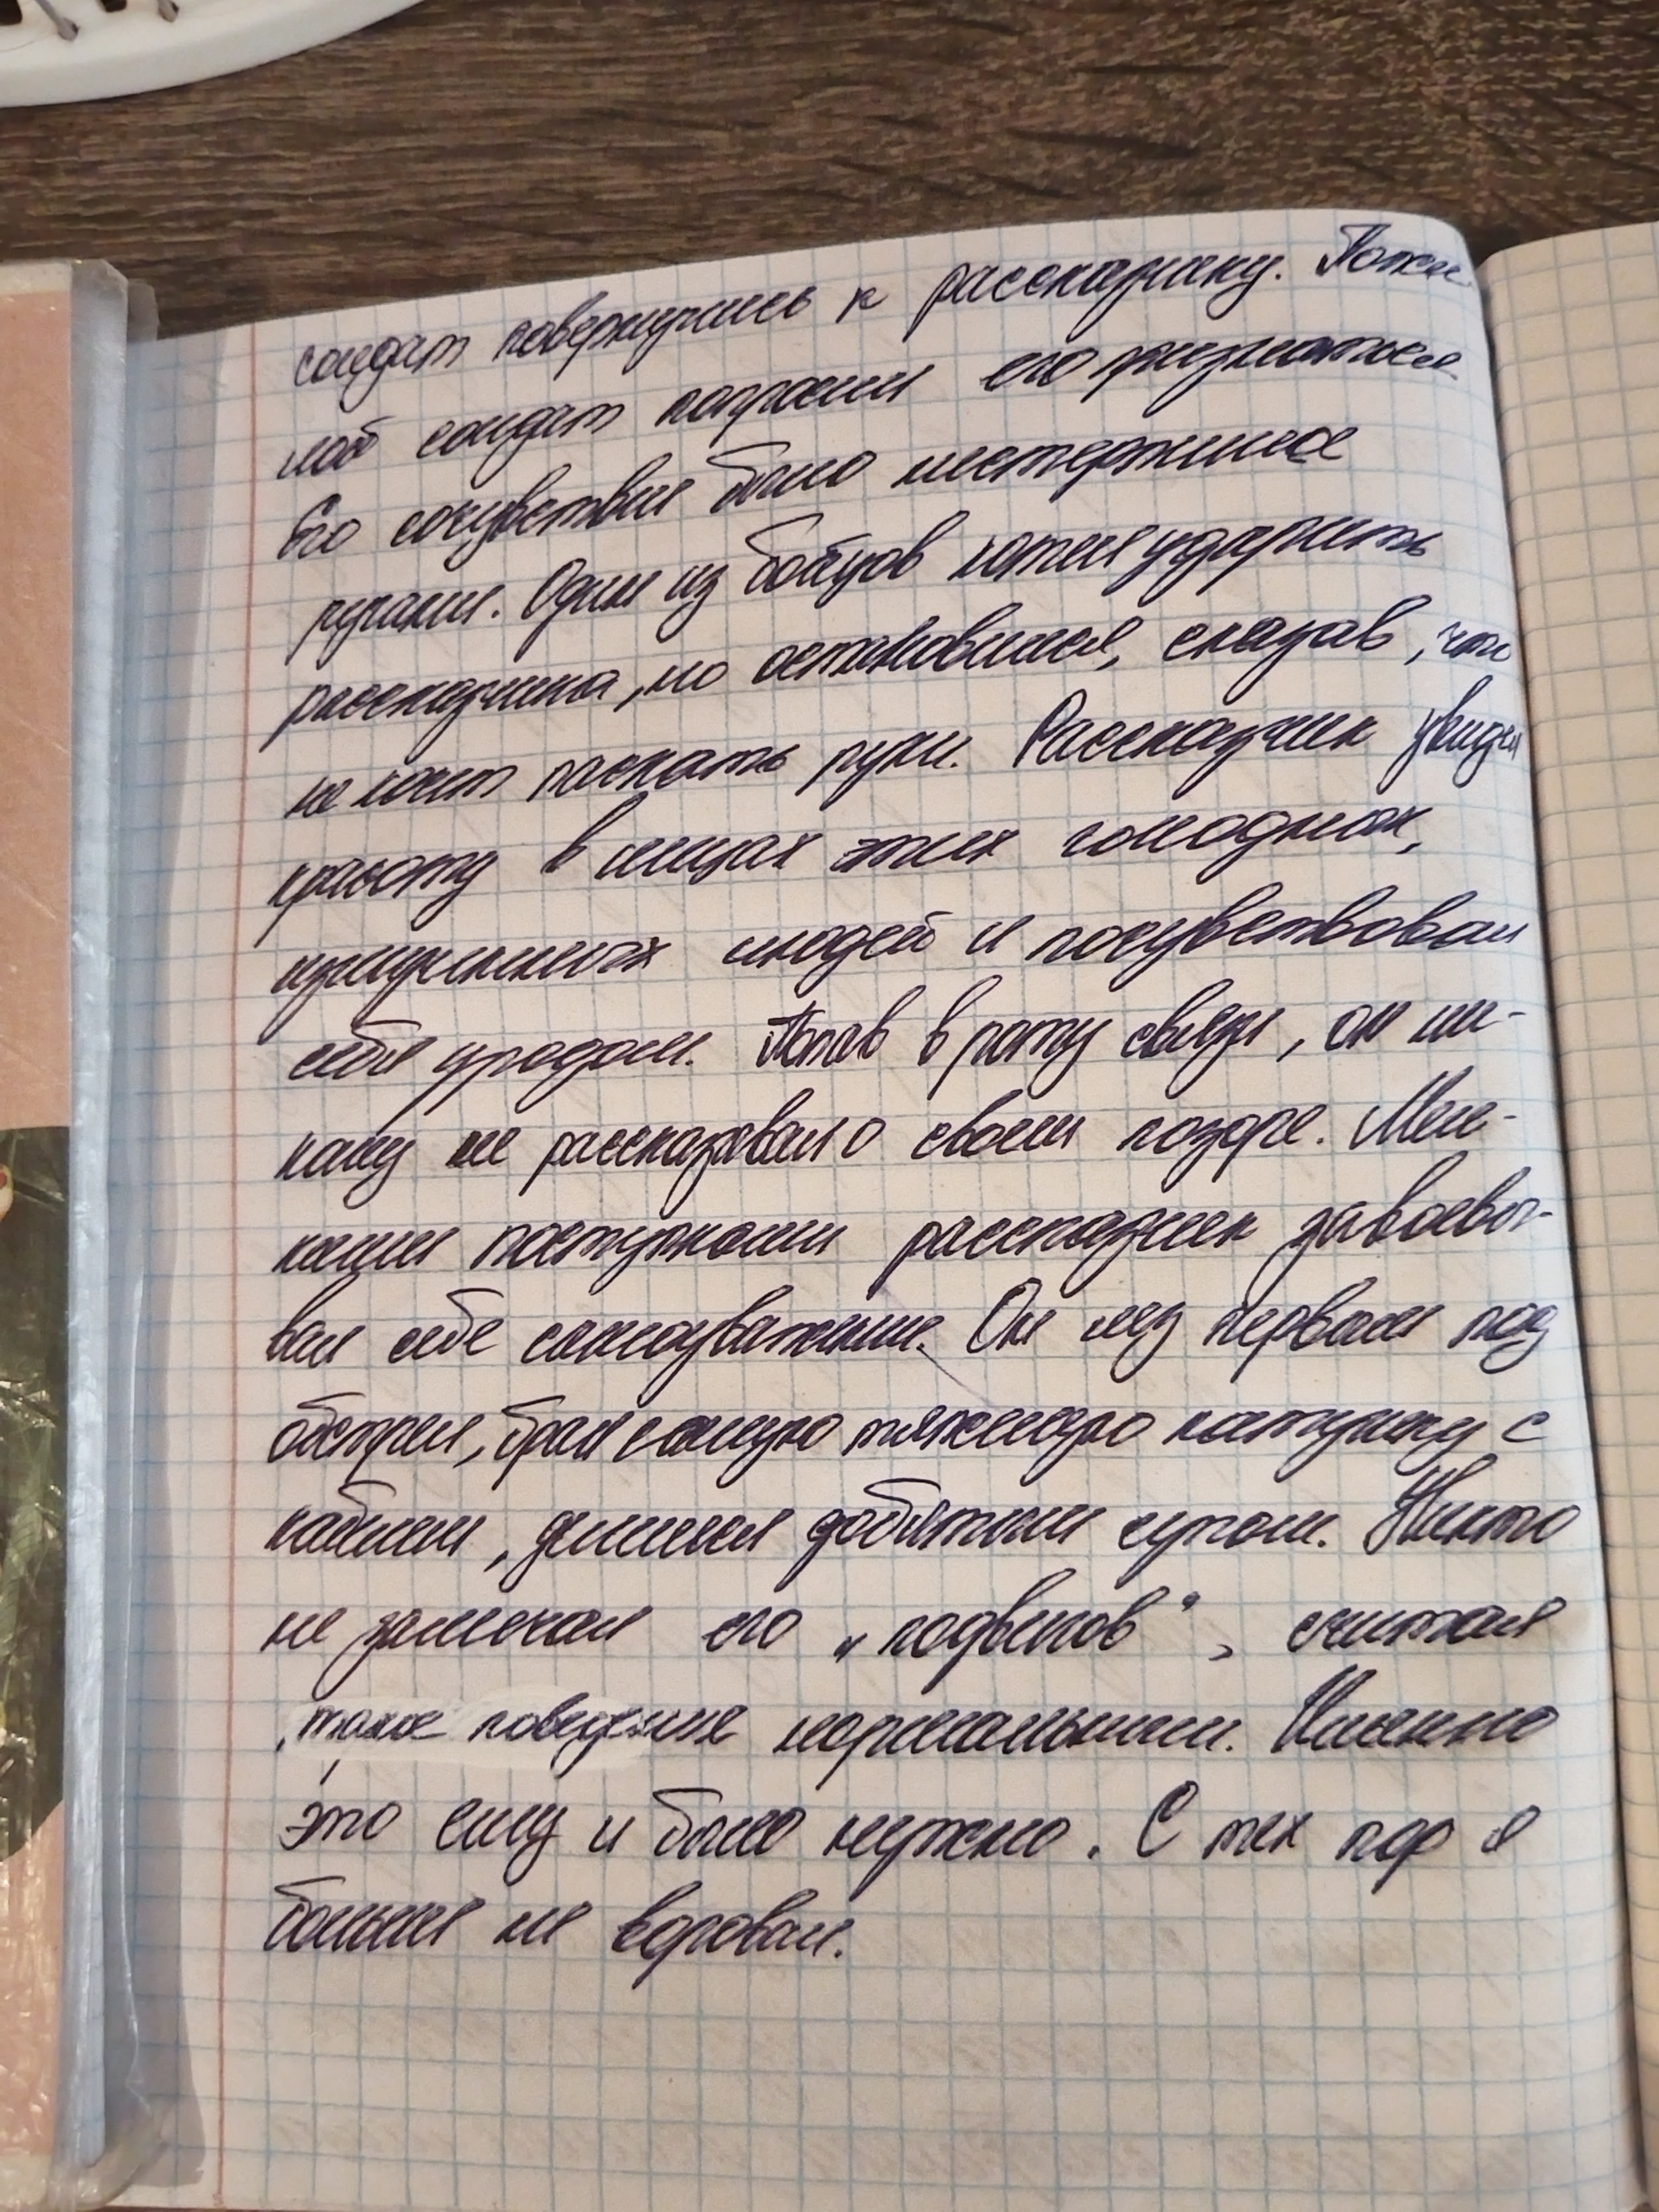 солдат повернулись к рассказчику. Пожи
лой солдат попросил его признаться.
Его сочувствие было нестерпимее
ругани. Один из бойцов хотел ударить
рассказчика, но остановился, сказав, что
не хочет пачкать руки. Рассказчик увидел
красоту в лицах этих голодных,
измученных людей и почувствовал
себя уродом. Попав в роту связи, он ни-
кому не рассказывал о своем позоре. Мел-
кими поступками рассказчик завоевы-
вал себе самоуважение. Он лез первым под
обстрел, брал самую тяжелую катушку с
кабелем, делился добытым супом. Никто
не замечал его „подвигов", считая
такое поведение нормальным. Именно
это ему и было нужно. С тех пор я
больше не воровал.